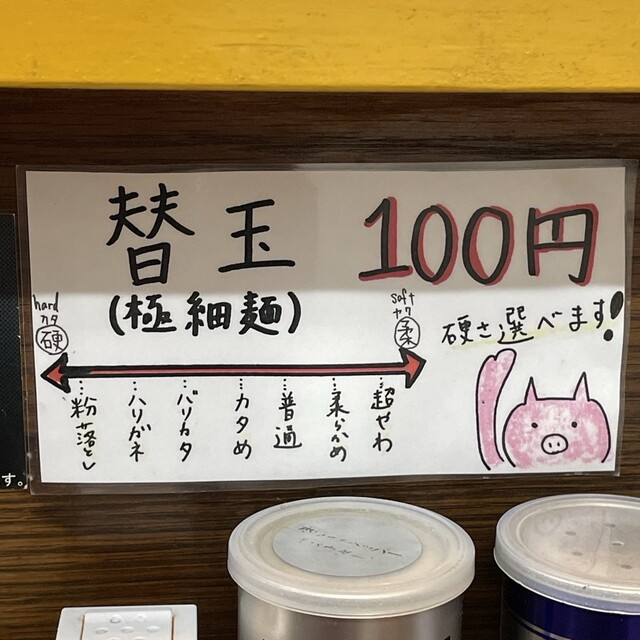 替玉 100円
(極細麺)
hard
カタ
硬
soft
ヤワ
柔
硬さ選べます!
…粉落とし
…ハリガネ
…バリカタ
…カタめ
…普通
…柔らかめ
…超やわ
す。